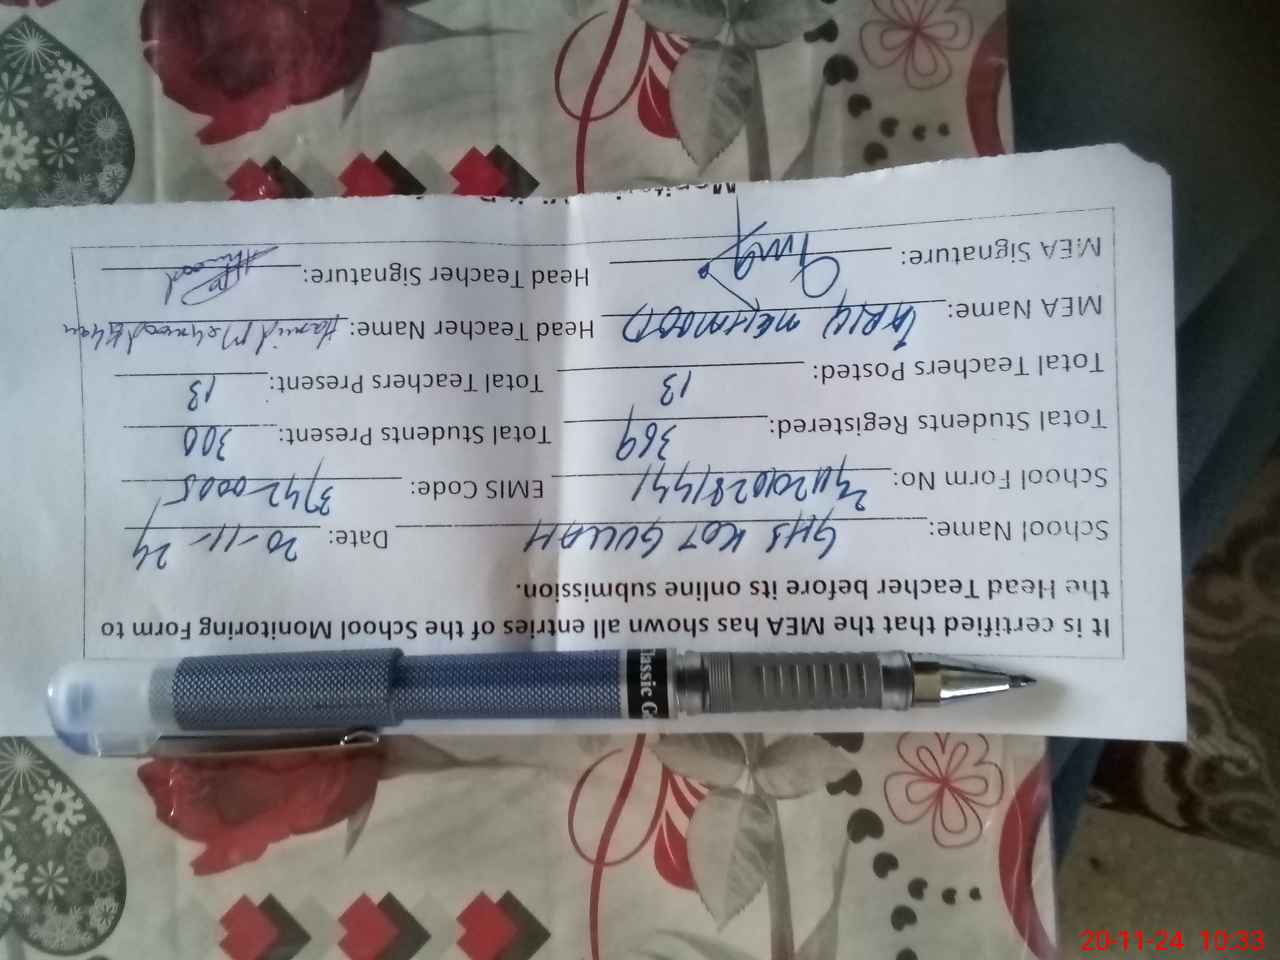 It is certified that the MEA has shown all entries of the School Monitoring Form to
the Head Teacher before its online submission.
School Name: GHS KOT GULLAH Date: 20-11-24
School Form No: EMIS Code: 37420005
Total Students Registered: 369 Total Students Present: 300
Total Teachers Posted: 13 Total Teachers Present: 13
MEA Name: TARIQ MEHMOOD Head Teacher Name: Hamid Mehmood
MEA Signature: Head Teacher Signature:
Classic
20-11-24 10:33